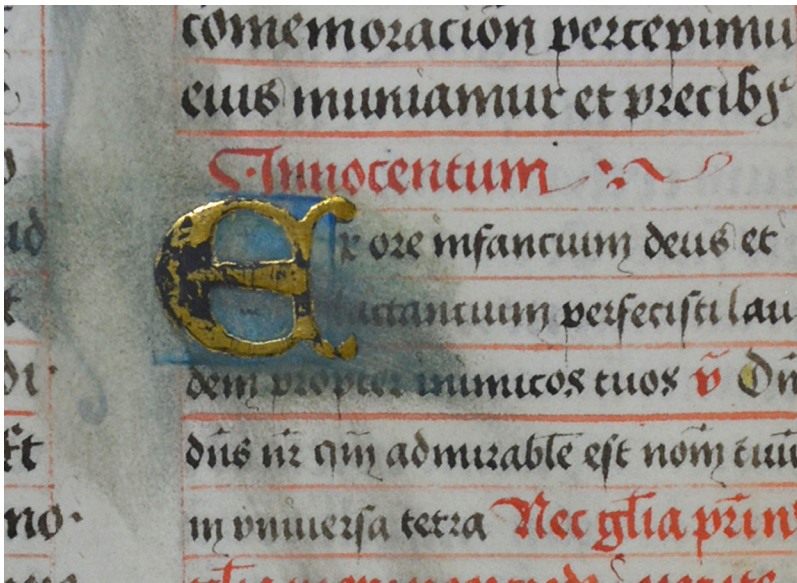 comemoracion percepimu
eius muniamur et precib9
Innocentum
Ex ore infancium deus et
lactancium perfecisti lau
dem propter inimicos tuos v̄ Dn̄
dn̄s nr̄ qm̄ admirable est nom̄ tuū
in vniuersa terra Nec glīa prīn